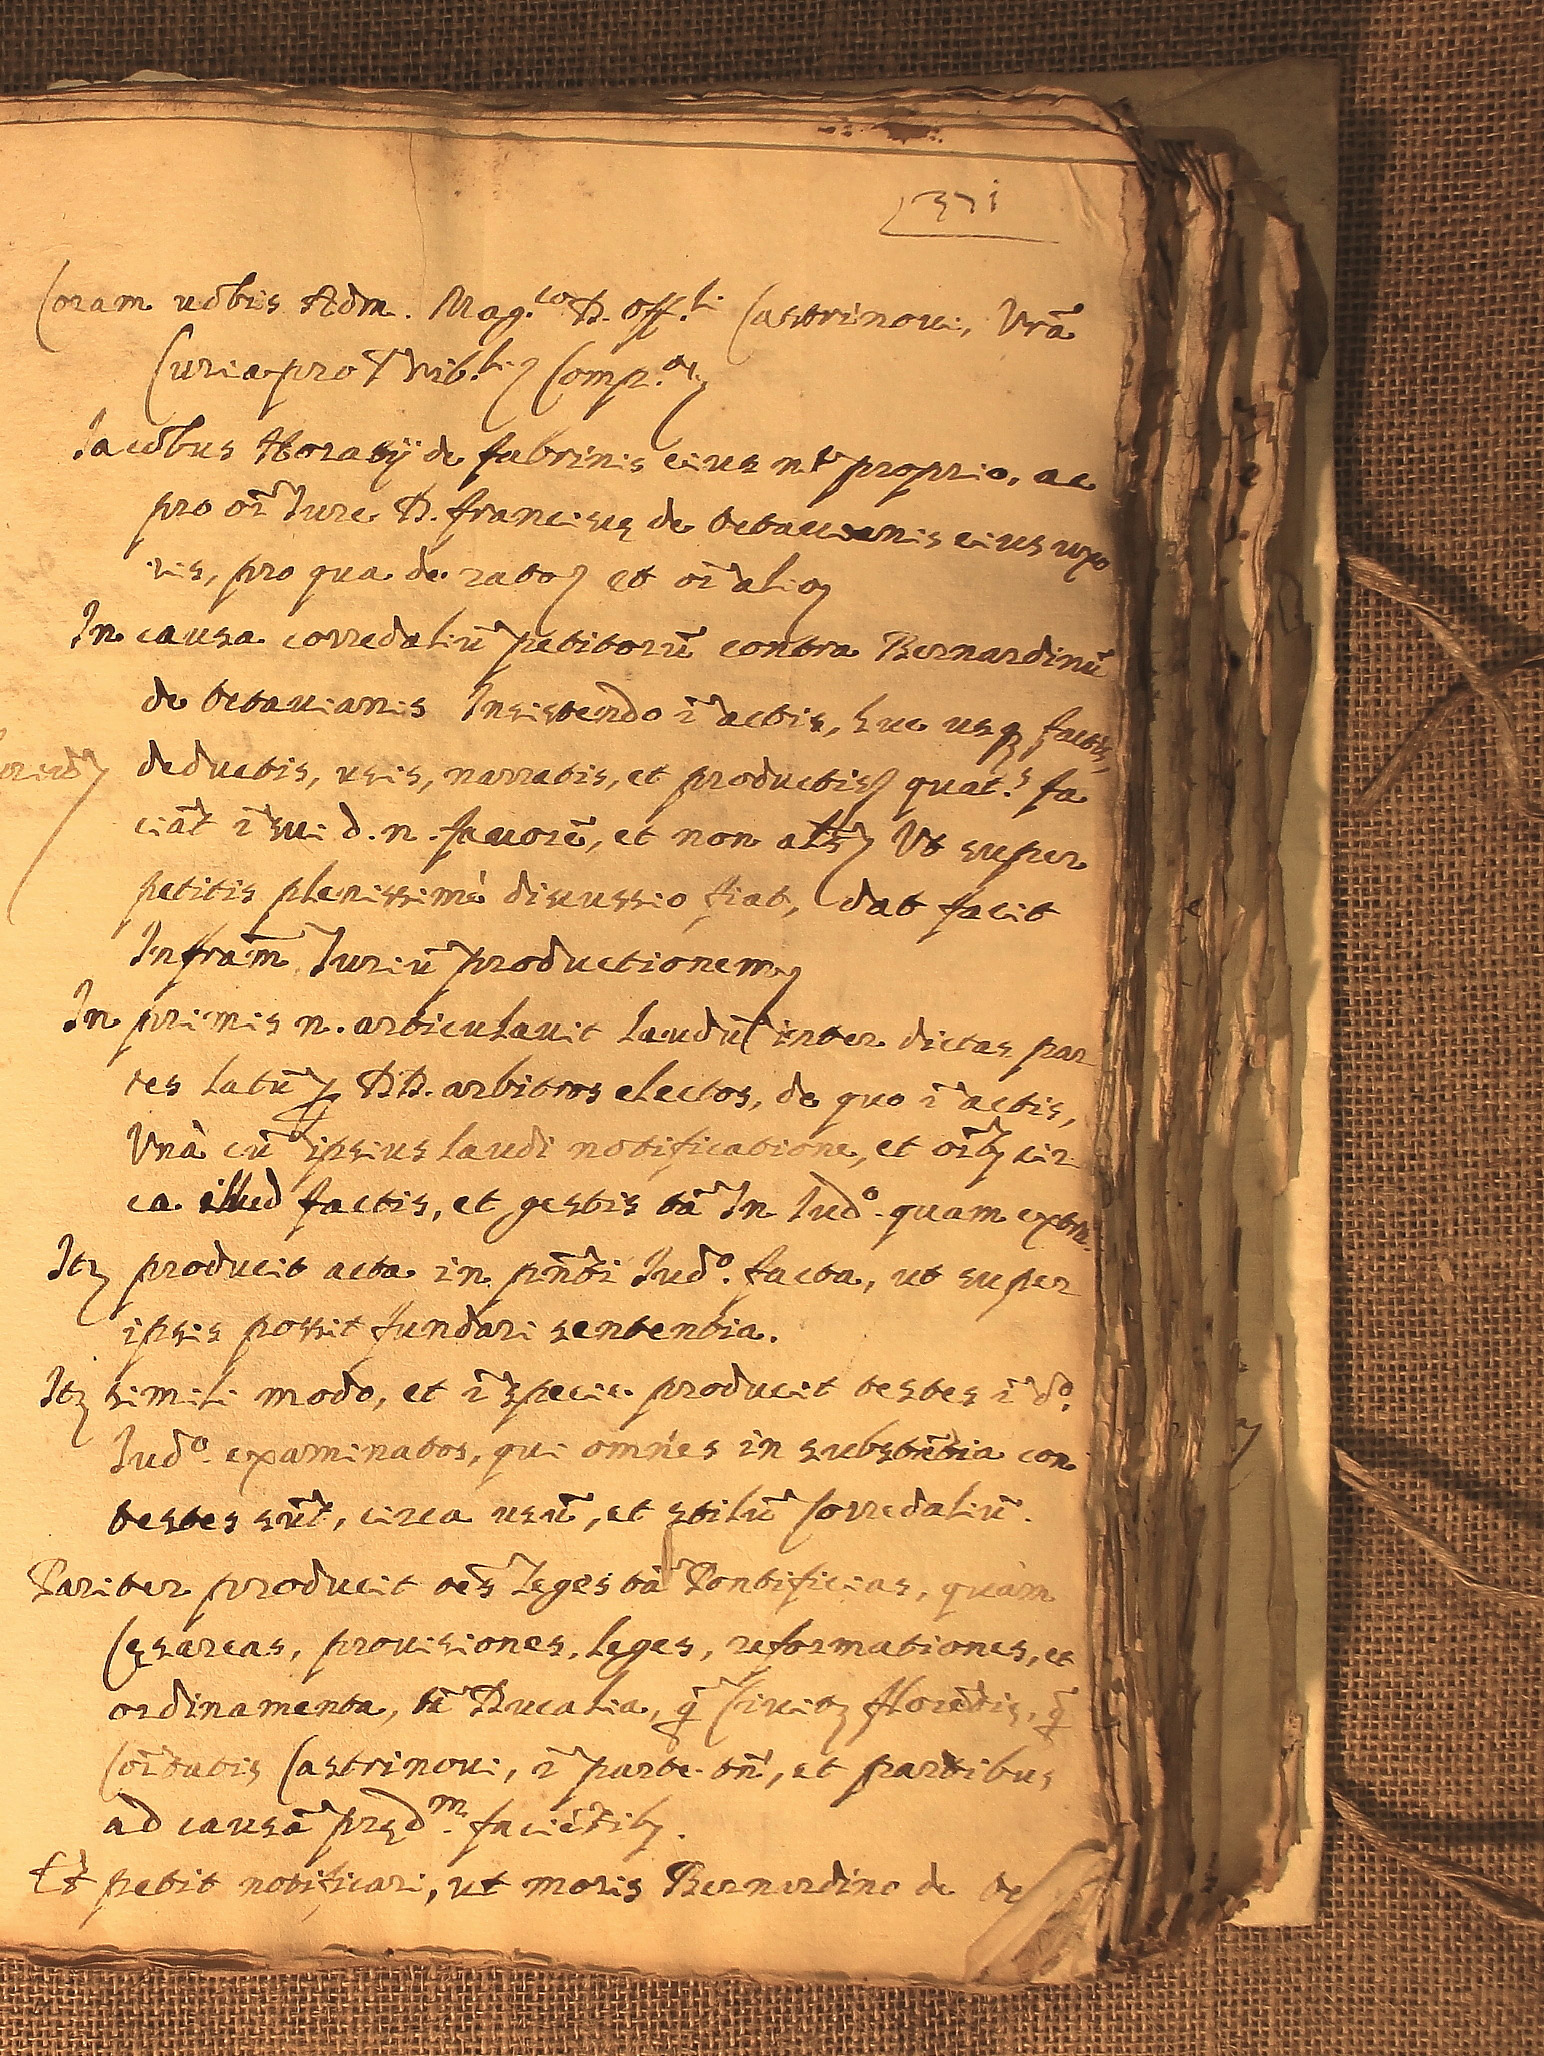 371
Coram uobis Adm. Mag.co D. Off.li Castrinoui, Vrã
Curia pro Trib.li Comp.
Iacobus Horatij de fabrinis eius nẽ proprio, ac
pro oĩ Iure D. francisce de betauianis eius uxo
ris, pro qua de rato, et oĩ alio
In causa corredaliũ petitorũ contra Bernardinũ
de betauianis Insistendo ĩ actis, huc usq factis,
deductis, uisis, narratis, et productis quat.s fa
ciãt ĩ sui d. n. fauorẽ, et non als Vt super
petitis plenissimè discussio fiat, dat facit
Infram̃ Iuriũ productionem
In primis n. articulauit laudũ inter dictas par
tes latũ p DD. arbitros electos, de quo ĩ actis,
Vnà cũ ipsius laudi notificatione, et oĩb cir
ca illud factis, et gestis tã In Iud.o quam extra.
Itẽ producit acta in pñti Iud.o facta, ut super
ipsis possit fundari sententia.
Itẽ simili modo, et ĩ specie producit testes ĩ d.o
Iud.o examinatos, qui omnes in substẽtia con
testes sũt, circa usũ, et stilũ Corredaliũ.
Pariter producit oẽs Leges tã Pontificias, quàm
Cęsareas, prouisiones, leges, reformationes, et
ordinamenta, tã Ducalia, q̃ Ciuitẽ florẽtis, q̃
Coĩtatis Castrinoui, ĩ parte tñ, et partibus
ad causã pręd.m faciẽtib.
Et petit notificari, ut moris Bernardino de be